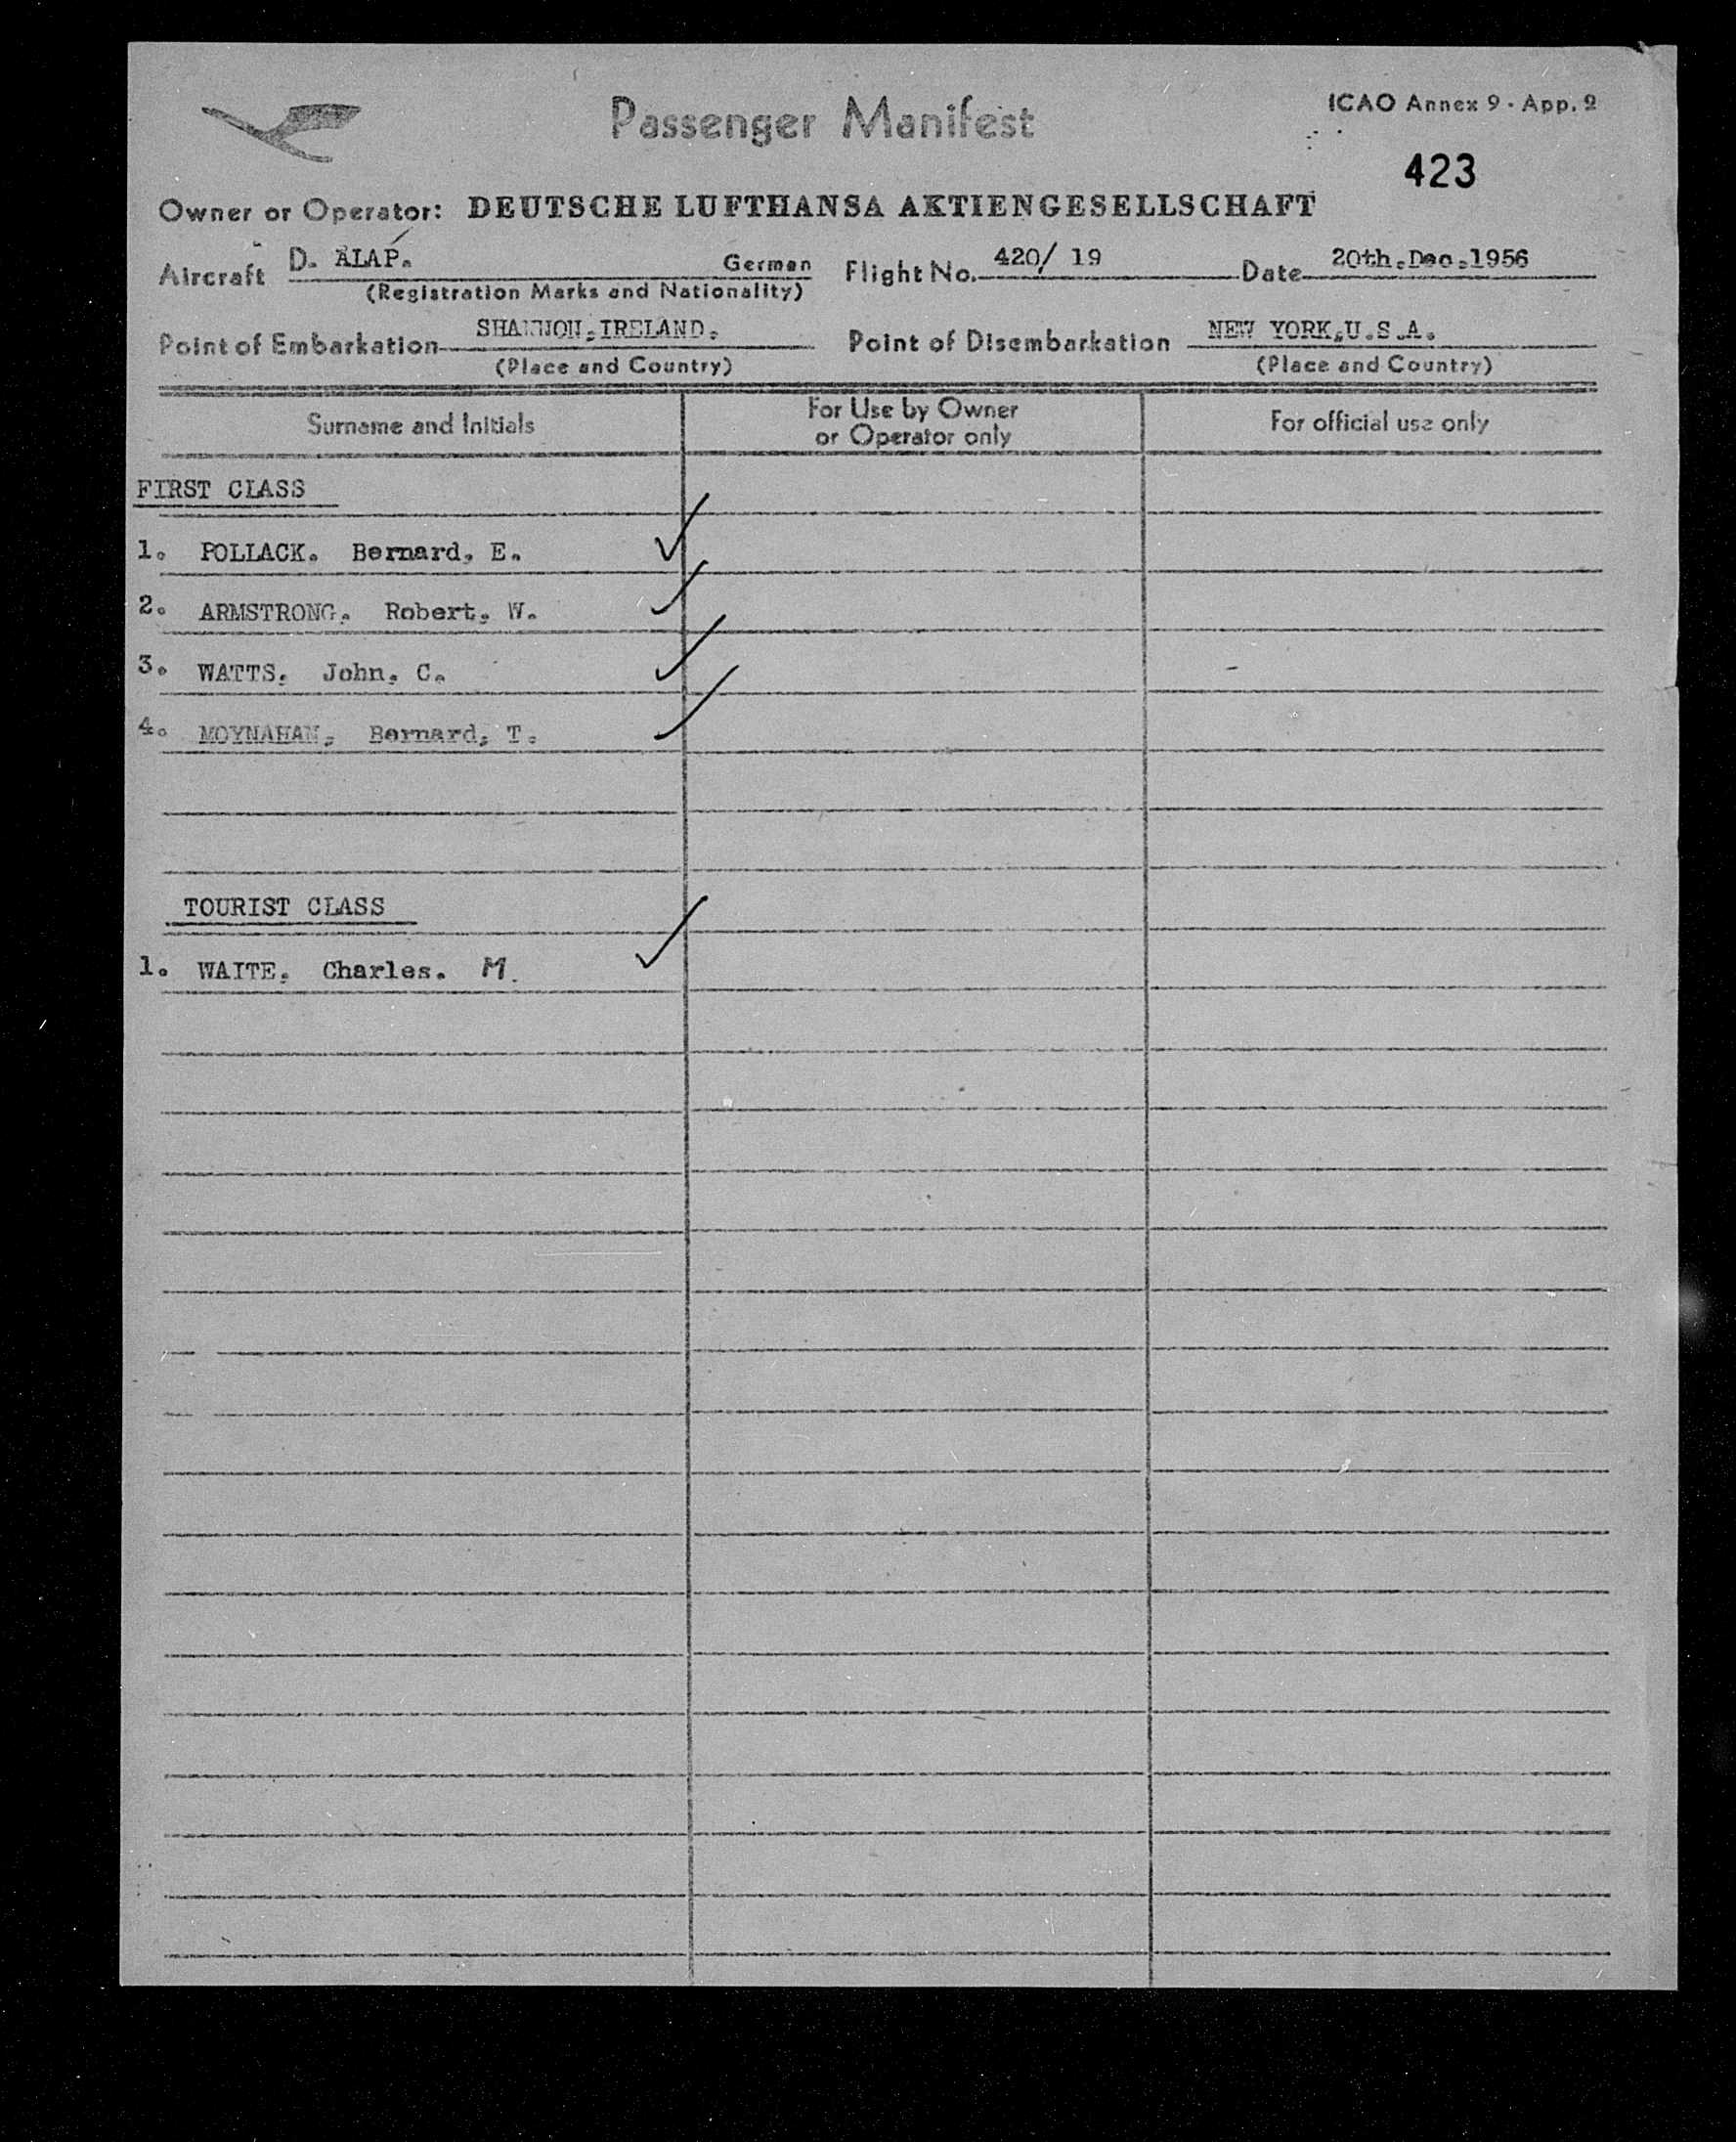 Passenger Manifest
ICAO Annex 9 · App. 2
423
Owner or Operator: DEUTSCHE LUFTHANSA AKTIENGESELLSCHAFT
Aircraft D. ALAP. German Flight No. 420/ 19 Date 20th.Dec.1956
(Registration Marks and Nationality)
Point of Embarkation SHANNON.IRELAND. Point of Disembarkation NEW YORK,U.S.A.
(Place and Country) (Place and Country)
Surname and Initials For Use by Owner or Operator only For official use only
FIRST CLASS
1. POLLACK. Bernard, E.
2. ARMSTRONG. Robert. W.
3. WATTS. John. C.
4. MOYNAHAN. Bernard, T.
TOURIST CLASS
1. WAITE. Charles. M.